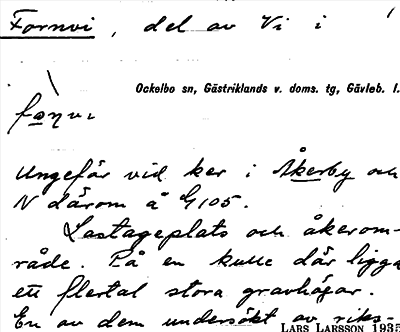 Fornvi, del av Vi i
Ockelbo sn, Gästriklands v. doms. tg, Gävleb. l.
Ungefär vid ker i Åkerby och
N därom å G 105.
Lastageplats och åkerom-
råde. På en kulle där ligga
ett flertal stora gravhögar.
En av dem undersökt av riks-
LARS LARSSON 1935